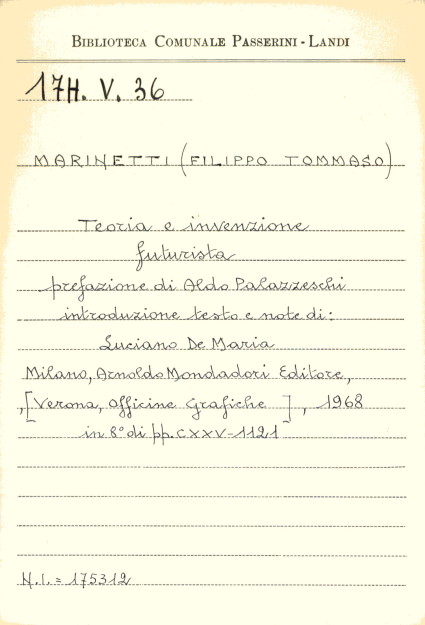 BIBLIOTECA COMUNALE PASSERINI - LANDI
17H. V. 36
MARINETTI (FILIPPO TOMMASO)
Teoria e invenzione
futurista
prefazione di Aldo Palazzeschi
introduzione testo e note di:
Luciano De Maria
Milano, Arnoldo Mondadori Editore,
,[Verona, Officine Grafiche ], 1968
in 8° di pp. CXXV-1121
N.I. = 175312